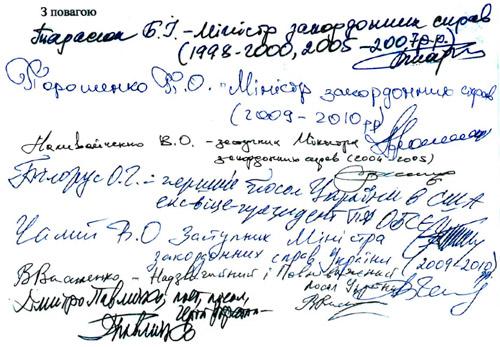 З повагою
Тарасюк Б.І. - Міністр закордонних справ
(1998-2000, 2005-2007 р.р.)
Порошенко П.О. - Міністр закордонних справ
(2009-2010 рр)
Наливайченко В.О. - заступник Міністра
закордонних справ (2004-2005)
Білорус О.Г. - перший Посол України в США
екс-віце-президент ПА ОБСЄ
Чалий В.О Заступник Міністра
закордонних справ України (2009-2010)
В Василенко - Надзвичайний і Повноважний
посол України
Дмитро Павличко, поет, посол,
Герой України